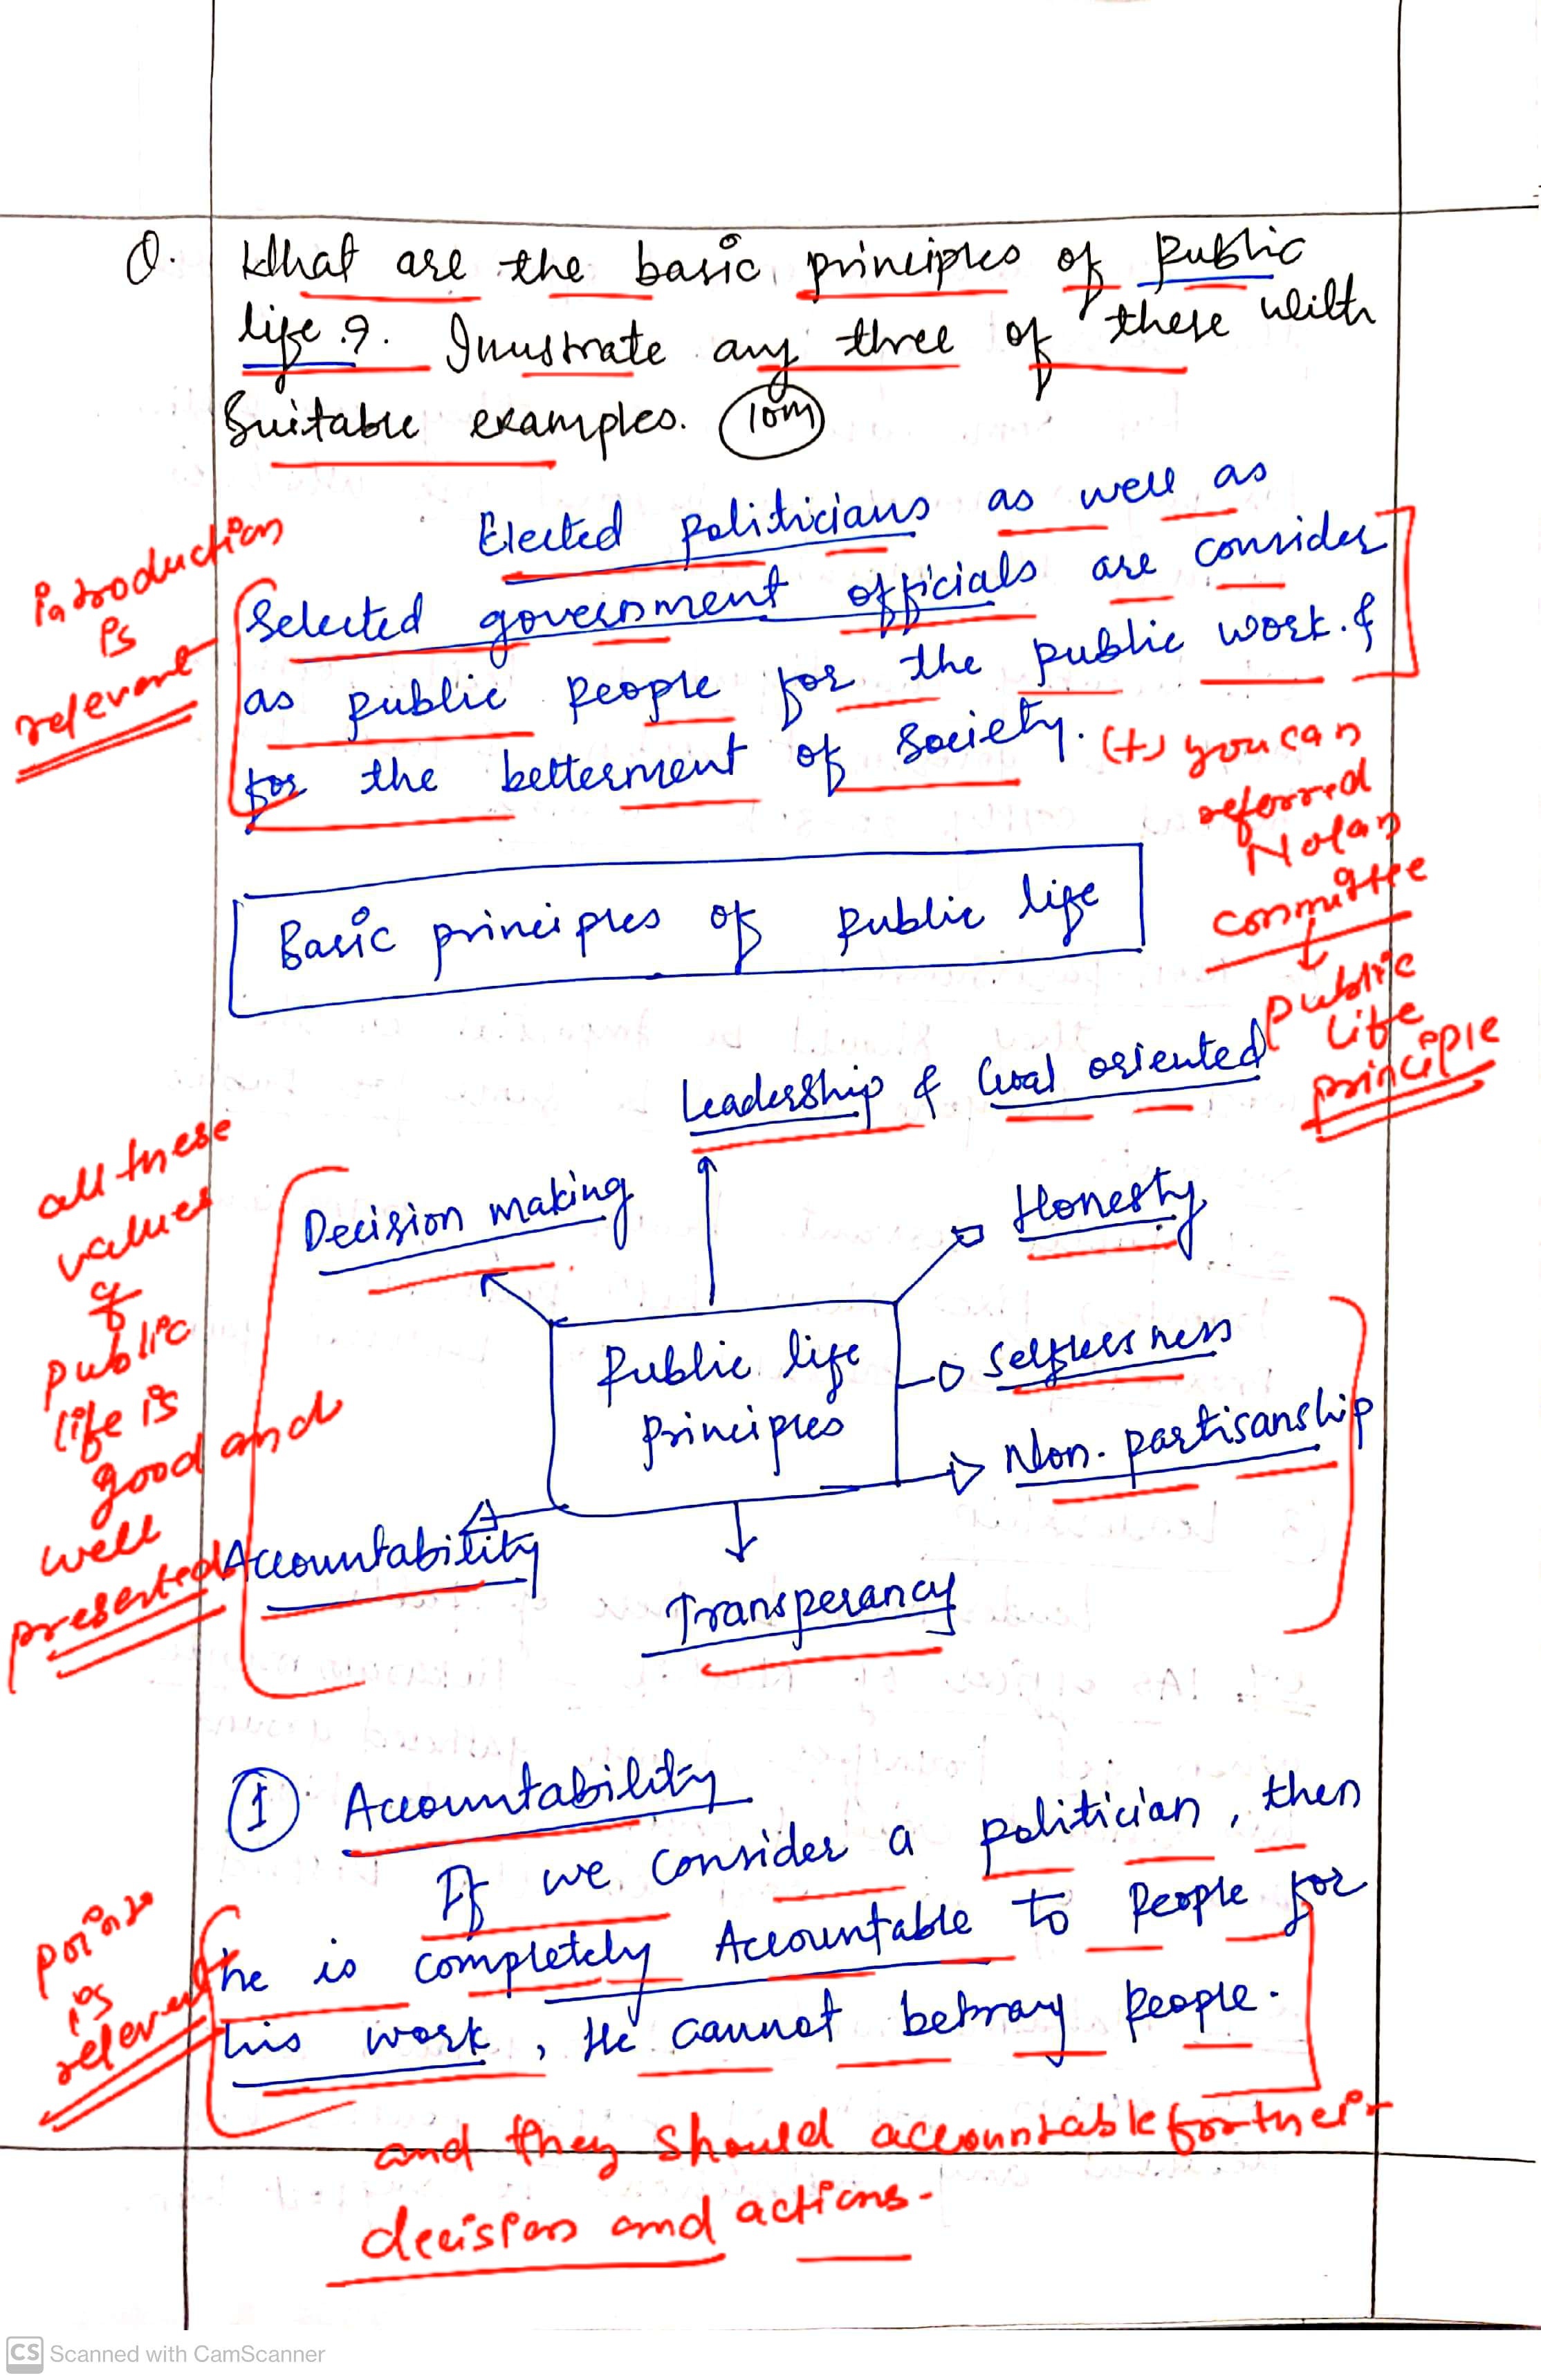 Q. What are the basic principles of Public
life ?. Illustrate any three of these with
Suitable examples. 10m
Elected politicians as well as
Selected government officials are consider
as public people for the public work &
for the betterment of Society.
introduction
is
relevant
(+) you can
referred
Nolan
committee
↓
public
life
principle
Basic principles of Public life
Leadership & Goal oriented
Decision making
Honesty
Public life
Principles
Selflessness
Non-partisanship
Accountability
Transperancy
all these
values
of
public
life is
good and
well
presented
① Accountability
If we consider a politician, then
he is completely Accountable to People for
his work, He cannot betray People.
point
is
relevent
and they should accountable for their
decision and actions.
CS Scanned with CamScanner